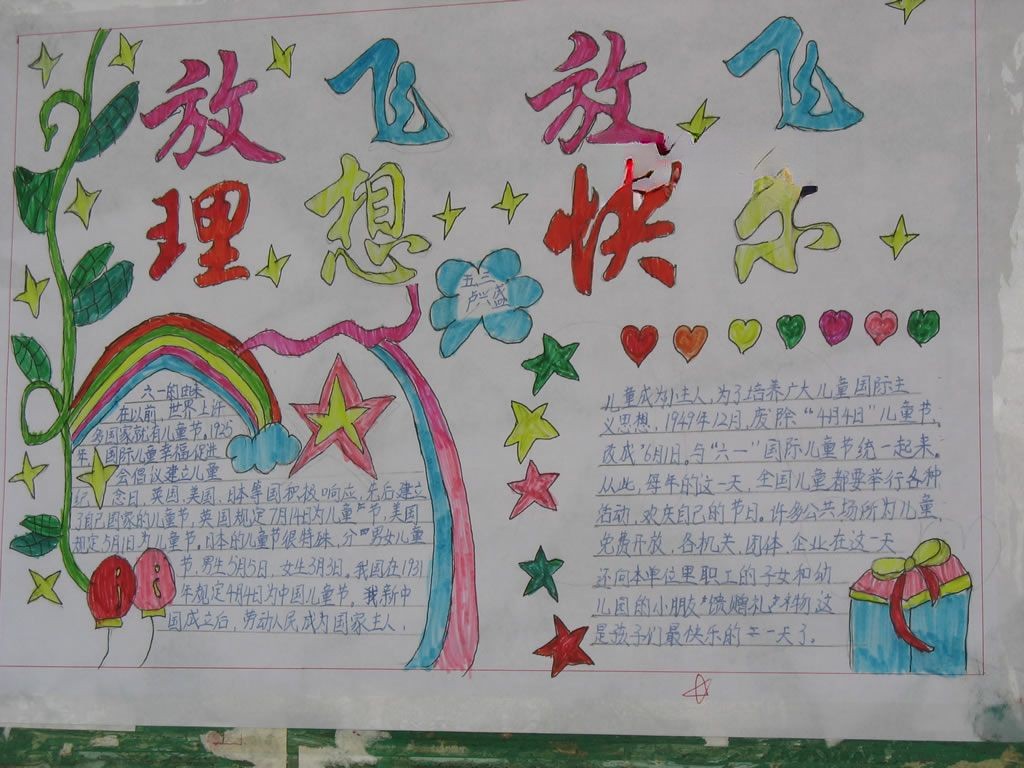 放飞 放飞
理想 快乐
五三
卢兴盛
六一的由来
在以前,世界上许
多国家就有儿童节。1925
年,国际儿童幸福促进
会倡议建立儿童
纪念日,英国,美国,日本等国积极响应,先后建立
了自己国家的儿童节,英国规定7月14日为儿童节,美国
规定5月1日为儿童节。日本的儿童节很特殊,分男女儿童
节,男生5月5日,女生3月3日。我国在1931
年规定4月4日为中国儿童节。我新中
国成立后,劳动人民成为国家主人,
儿童成为小主人,为了培养广大儿童国际主
义思想,1949年12月,废除“4月4日”儿童节,
改成“6月1日。与“六一”国际儿童节统一起来。
从此,每年的这一天,全国儿童都要举行各种
活动,欢庆自己的节日。许多公共场所为儿童
免费开放,各机关,团体,企业在这一天
还向本单位里职工的子女和幼
儿园的小朋友馈赠礼物,这
是孩子们最快乐的一天了。